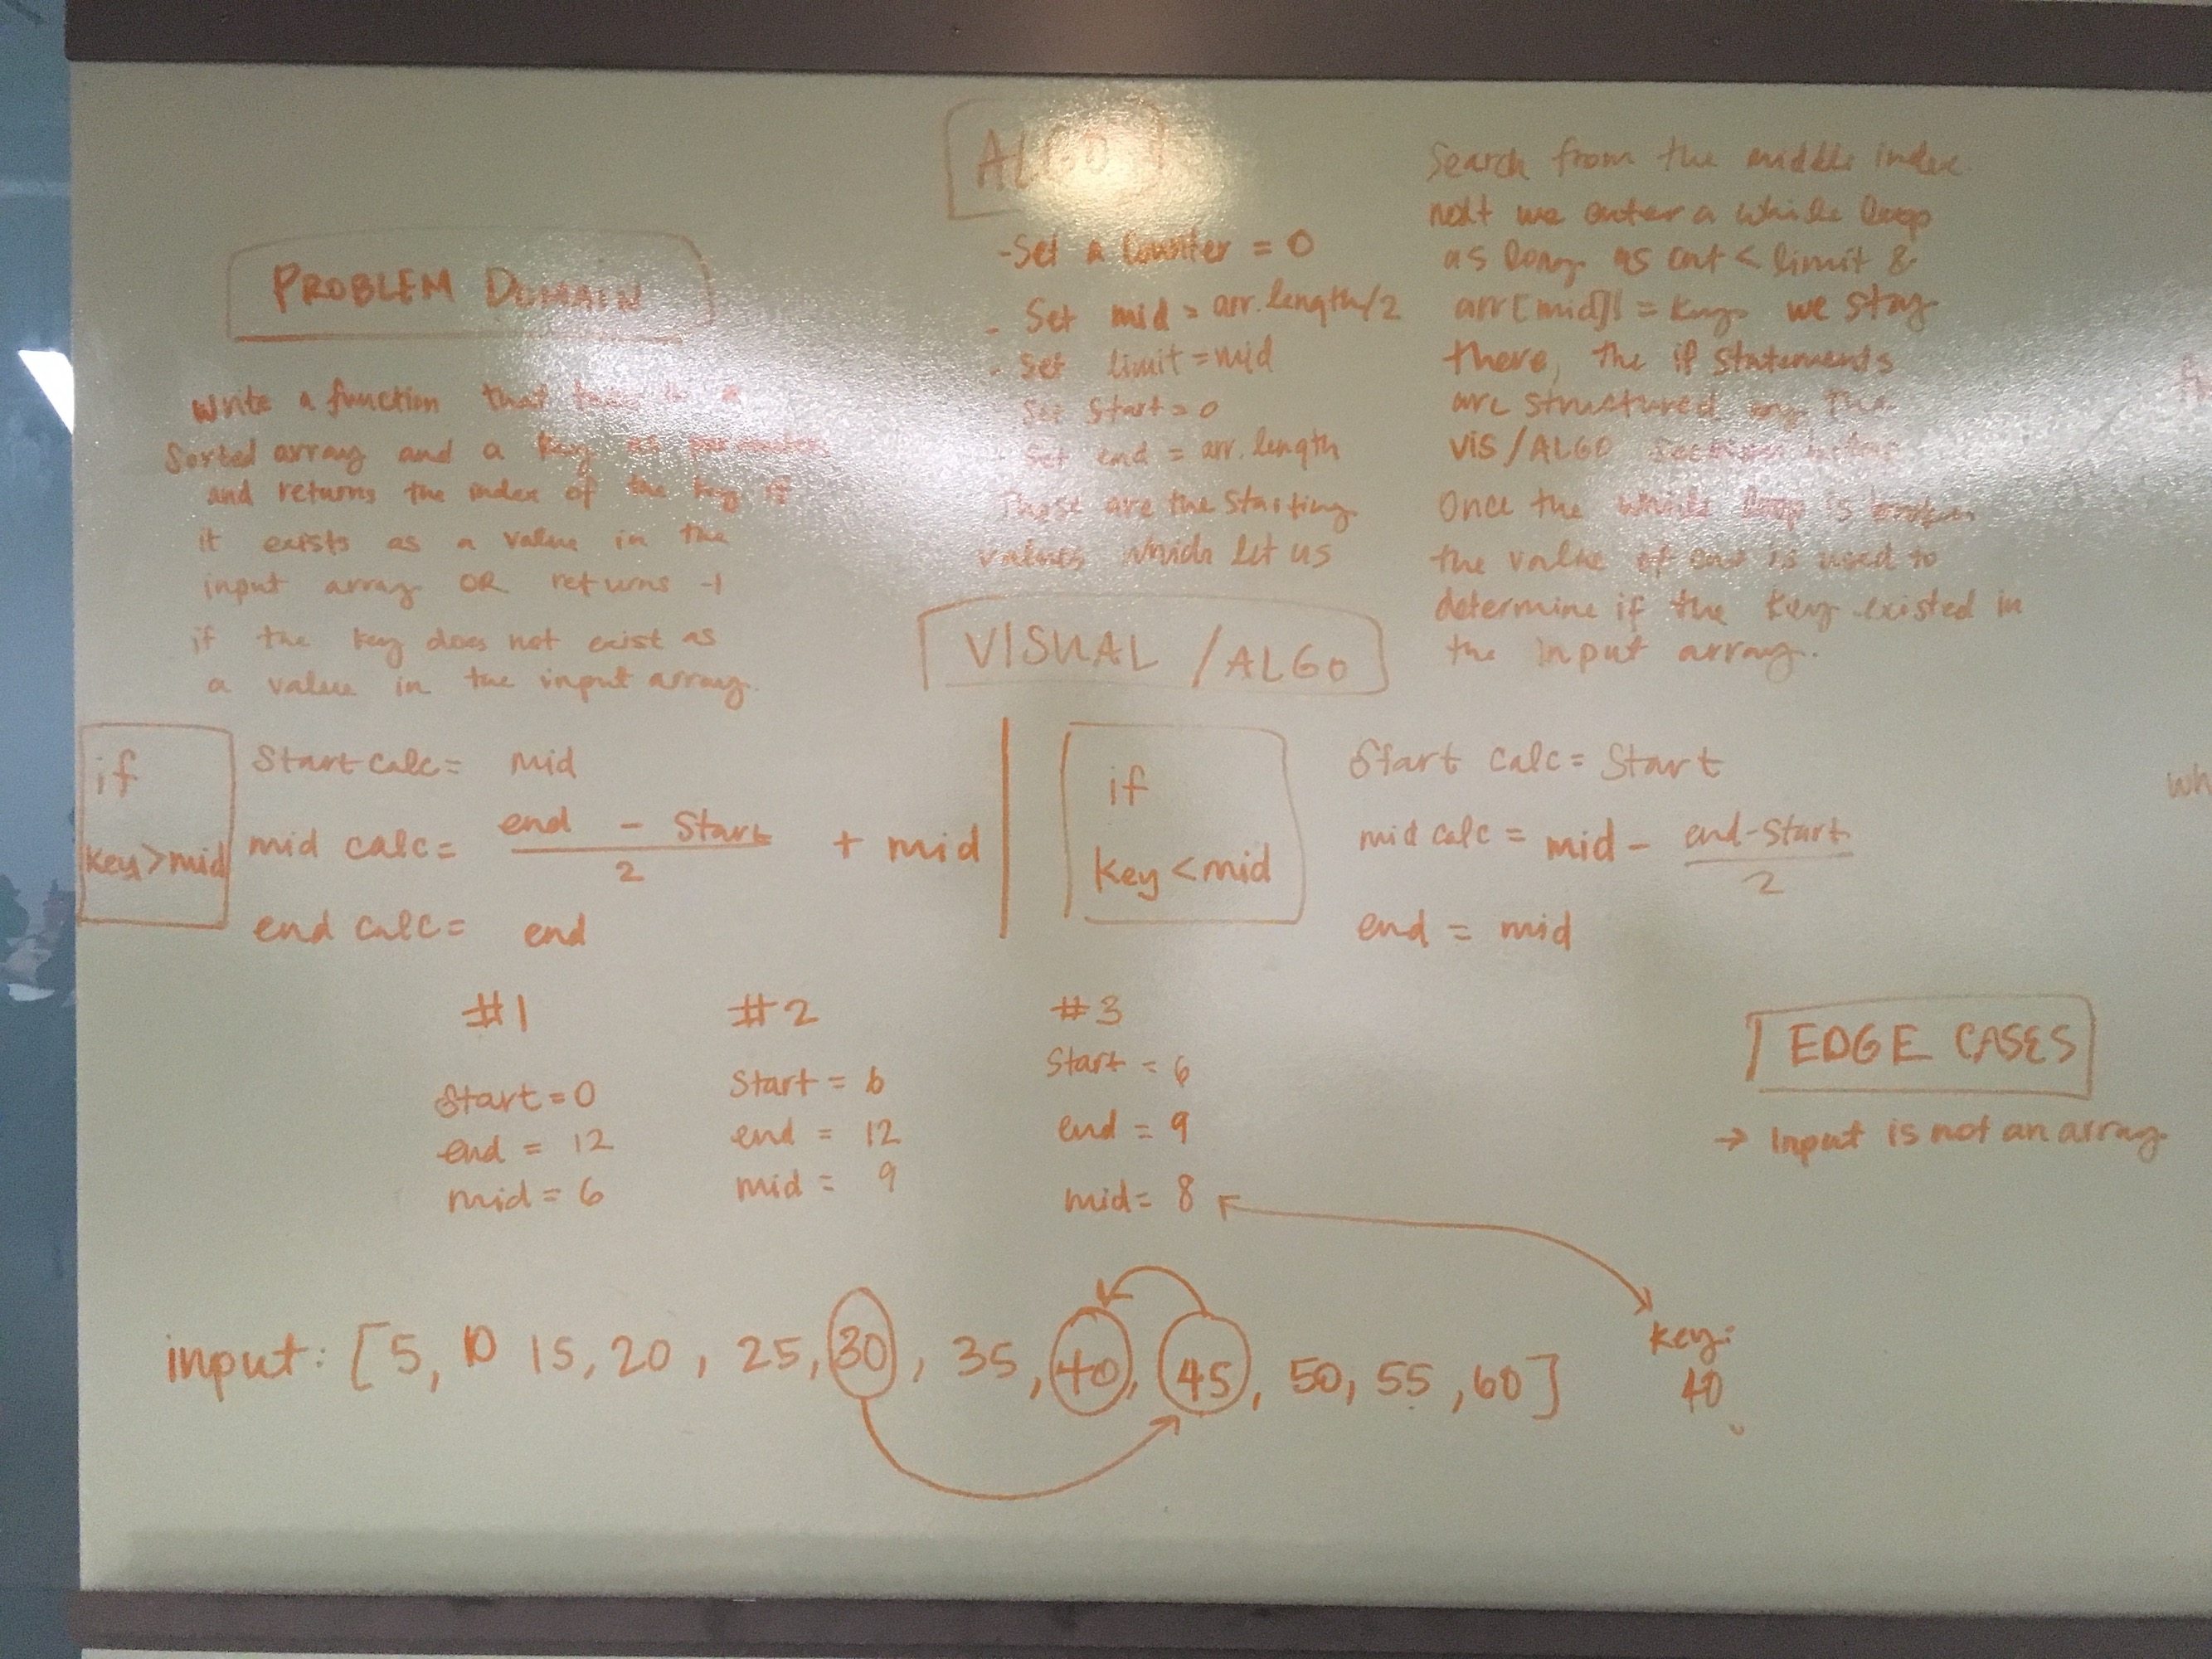 PROBLEM DOMAIN
Write a function that takes in a
Sorted array and a key as parameters
and returns the index of the key if
it exists as a value in the
input array OR returns -1
if the key does not exist as
a value in the input array.
ALGO
- Set a Counter = 0
- Set mid = arr.length/2
- Set limit = mid
Set Start = 0
- Set end = arr.length
These are the Starting
values which let us
Search from the middle index
next we enter a while loop
as long as cnt < limit &
arr[mid] != key we stay
there, the if statements
are structured the
VIS/ALGO
Once the while loop is broken
the value of is used to
determine if the key existed in
the input array.
VISUAL / ALGO
if
key > mid
Start calc = mid
mid calc = end - Start / 2 + mid
end calc = end
if
key < mid
Start calc = Start
mid calc = mid - end-Start / 2
end = mid
#1
Start = 0
end = 12
mid = 6
#2
Start = 6
end = 12
mid = 9
#3
Start = 6
end = 9
mid = 8
EDGE CASES
→ Input is not an array.
input: [5, 10 15, 20, 25, 30, 35, 40, 45, 50, 55, 60]
key:
40
wh